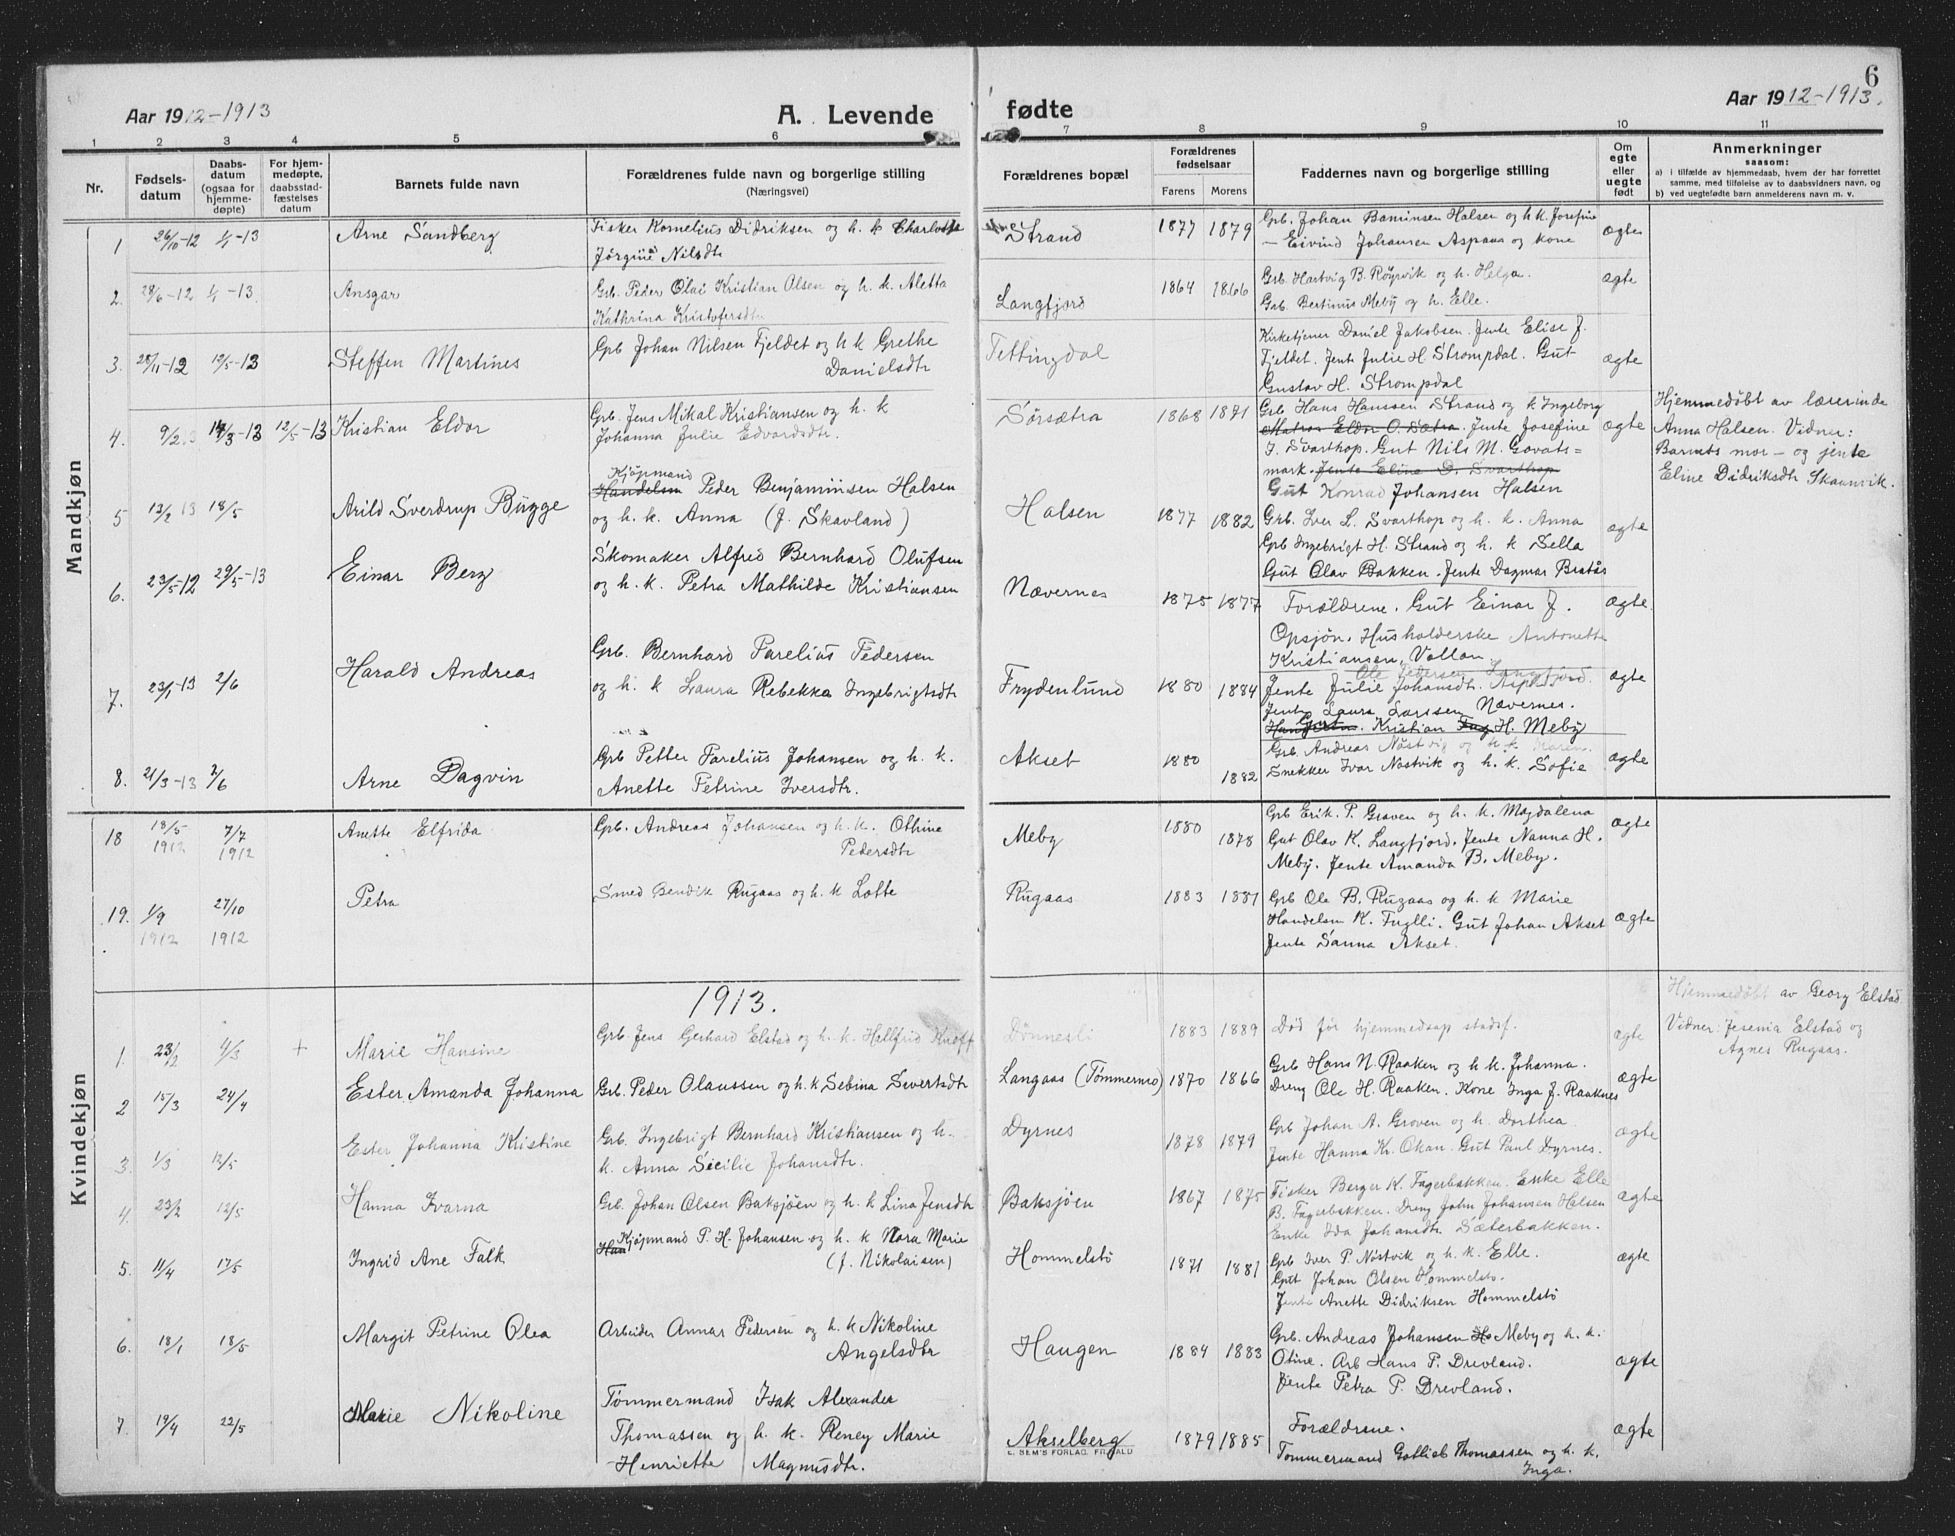 6
Aar 1912-1913
A. Levende fødte
Aar 1912-1913.
1 2 3 4 5 6 7 8 9 10 11
Nr.
Fødsels-
datum
Daabs-
datum
(ogsaa for
hjemme-
døpte)
For hjem-
medøpte,
daabsstad-
fæstelses
datum
Barnets fulde navn
Forældrenes fulde navn og borgerlige stilling
(Næringsvei)
Forældrenes bopæl
Forældrenes
fødselsaar
Farens Morens
Faddernes navn og borgerlige stilling
Om
egte
eller
uegte
født
Anmerkninger
saasom:
a) i tilfælde av hjemmedaab, hvem der har forrettet
samme, med tilføielse av to daabsvidners navn, og
b) ved uegtefødte barn anmelderens navn m. v.
Mandkjøn
1 26/10-12 1/1-13 Arne Sandberg
Fisker Kornelius Didriksen og h. k Charlotte
Jørgine Nilsdtr
Strand 1877 1879
Grb. Johan Benminsen Halsen og h.k. Josefine
— Eivind Johansen Aspaas og kone
ægte
2. 28/6-12 1/1-13. Ansgar
Grb. Peder Olai Kristian Olsen og h. k. Aletta
Kathrina Kristofersdtr
Langfjord 1864 1866
Grb. Hartvig B. Røyrvik og h. Helga.
Grb. Bertinus Meby og h. Elle.
ægte
3. 28/11-12 12/5-13 Steffen Martines
Grb Johan Nilsen Fjeldet og h k Grethe
Danielsdtr
Tettingdal
Kirketjener Daniel Jakobsen. Jente Elise J.
Fjeldet. Jente Julie H Strompdal. Gut
Gustav H. Strompdal
ægte
4. 9/2 13 14/3-13 12/5-13 Kristian Eldor
Grb. Jens Mikal Kristiansen og h. k
Johanna Julie Edvardsdtr.
Sørsætra 1868 1871
Grb Hans Hanssen Strand og k Ingeborg
Matros Eldor O. Sætra. Jente Josefine
J. Svarthop. Gut Nils M. Govats=
mark. Jente Eline D. Svarthop
ægte
Hjemmedøbt av lærerinde
Anna Halsen. Vidner:
Barnets mor — og jente
Eline Didriksdtr Skaanvik.
5 13/2 13 18/5 Arild Sverdrup Bugge
Kjøpmand
Handelsm Peder Benjaminsen Halsen
og h. k. Anna (f. Skavland)
Halsen 1877 1882
Gut Konrad Johansen Halsen
Grb. Iver L. Svarthop og h. k. Anna
Grb Ingebrigt H. Strand og h. k Sella
Gut Olav Bakken. Jente Dagmar Bratås
ægte
6. 23/5-12 29/5-13 Einar Berg
Skomaker Alfred Bernhard Olufsen
og h. k. Petra Mathilde Kristiansen
Nævernes 1875 1877
Forældrene. Gut Einar J.
Opsjøn. Husholderske Antonette
Kristiansen, Vollan.
ægte.
7. 23/1-13 2/6 Harald Andreas
Grb. Bernhard Parelius Pedersen
og h. k Laura Rebekka Ingebrigtsdtr
Frydenlund 1880 1884
Ole Pedersen Langfjord.
Jente Julie Johansdtr. Aspli
Jente Laura Larssen Nævernes.
Kristian H. Meby
ægte
8. 21/3-13 2/6 Arne Dagvin
Grb Petter Parelius Johansen og h. k.
Anette Petrine Iversdtr.
Akset 1880 1882
Grb. Andreas Nøstvig og h. k. Karen.
Snekker Ivar Nøstvik og h. k. Sofie
ægte
Kvindekjøn
18 18/5 1912 7/7 1912 Anette Elfrida
Grb. Andreas Johansen og h.k. Othine
Pedersdtr
Meby 1880 1878
Grb Erik. P. Groven og h. k. Magdalena
Gut Olav K. Langfjord. Jente Nanna H.
Meby. Jente Amanda B. Meby.
ægte
19. 1/9 1912 27/10 1912 Petra
Smed Bendik Rugaas og h. k Lotte
Rugaas 1883 1881
Grb Ole B. Rugaas og h. k Marie
Handelsm K. Fuglli. Gut Johan Akset
Jente Sanna Akset.
ægte
1913.
1. 23/2 4/3 + Marie Hansine
Grb. Jens Gerhard Elstad og h. k. Hallfrid Knoff
Dønnesli 1883 1889
Død før hjemmedaap stadsf.
ægte
Hjemmedøbt av Georg Elstad.
Vidner: Jesenia Elstad og
Agnes Rugaas.
2 15/3 24/4 Ester Amanda Johanna
Grb. Peder Olaussen og h. k. Sebina Sivertsdtr
Langaas (Tømmermo) 1870 1866
Grb Hans N. Raaken og h. k. Johanna.
Dreng Ole H. Raaken. Kone Inga J. Raaknes
ægte
3. 1/3 12/5 Ester Johanna Kristine
Grb. Ingebrigt Bernhard Kristiansen og h.
k. Anna Sicilie Johansdtr.
Dyrnes 1878 1879
Grb Johan A. Groven og h. Dorthea
Jente Hanna Kr. Okan. Gut Paul Dyrnes.
ægte
4. 23/2 12/5 Hanna Ivarna
Grb. Johan Olsen Baksjøen og h. k Lina Jensdtr
Baksjøen 1867 1875
Fisker Berger K. Fagerbakken. Enke Elle
B. Fagerbakken. Dreng John Johansen Halsen
Enke Ida Johansdtr. Sæterbakken.
ægte
5. 11/4 17/5 Ingrid Ane Falk
Han Kjøpmand P. H. Johansen og h. k Nora Marie
(f. Nikolaisen)
Hommelstø 1871 1881
Grb Iver P. Nøstvik og h. k. Elle.
Gut Johan Olsen Hommelstø.
Jente Anette Didriksen Hommelstø
ægte
6. 18/1 18/5 Margit Petrine Olea
Arbeider Annar Pedersen og h. k Nikoline
Angelsdtr
Haugen 1884 1883
Grb. Andreas Johansen Meby og h. k.
Otine. Arb Hans P. Drevland.
Jente Petra P. Drevland.
ægte
7. 19/4 22/5 Marie Nikoline
Tømmermand Isak Alexander
Thomassen og h. k. Reney Marie
Henriette Magnusdtr.
Akselberg 1879 1885
Forældrene.
Tømmermand Gotlieb Thomassen og h. k.
Inga.
ægte
E. SEM'S FORLAG, FR.HALD